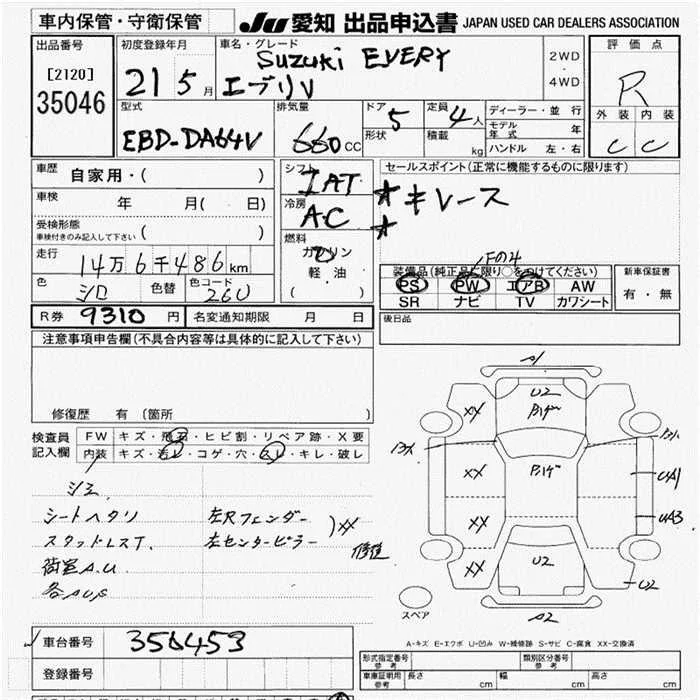 車内保管・守衛保管
JU 愛知 出品申込書 JAPAN USED CAR DEALERS ASSOCIATION
出品番号
[2120]
35046
初度登録年月
21 5 月
車名・グレード
Suzuki EVERY
エブリV
2WD
・
4WD
評価点
R
外装 内装
C C
型式
EBD-DA64V
排気量
660 CC
ドア 5
形状
定員 4 人
積載 kg
ディーラー・並行
モデル年式 年
ハンドル 左・右
車歴 自家用・( )
車検 年 月( 日)
受検形態
車検付きのみ記入して下さい ( )
走行
14万6千486km
色
シロ
色替
色コード
26U
シフト
IAT
冷房
AC
燃料
ガソリン
軽油
( )
セールスポイント(正常に機能するものに限ります)
キレース
装備品(純正品に限り○をつけてください)
PS PW エアB AW
SR ナビ TV カワシート
新車保証書
有・無
R券 9310 円
名変通知期限 月 日
後日品
注意事項申告欄(不具合内容等は具体的に記入して下さい)
修復歴 有 〔箇所 〕
検査員
記入欄
FW キズ・飛石・ヒビ割・リペア跡・X要
内装 キズ・汚レ・コゲ・穴・スレ・キレ・破レ
シミ
シートヘタリ
スタッドレスT.
荷室A.U.
各AUS
左Rフェンダー
左センターピラー
XX
修復
A1
U2
XX
XX
XX
XX
UA1
UA3
U2
U2
A2
スペア
A-キズ E-エクボ U-凹み W-補修跡 S-サビ C-腐食 XX-交換済
車台番号 356453
登録番号
形式指定番号
参考
類別区分番号
参考
車庫証明用
参考
長さ cm 幅 cm 高さ cm